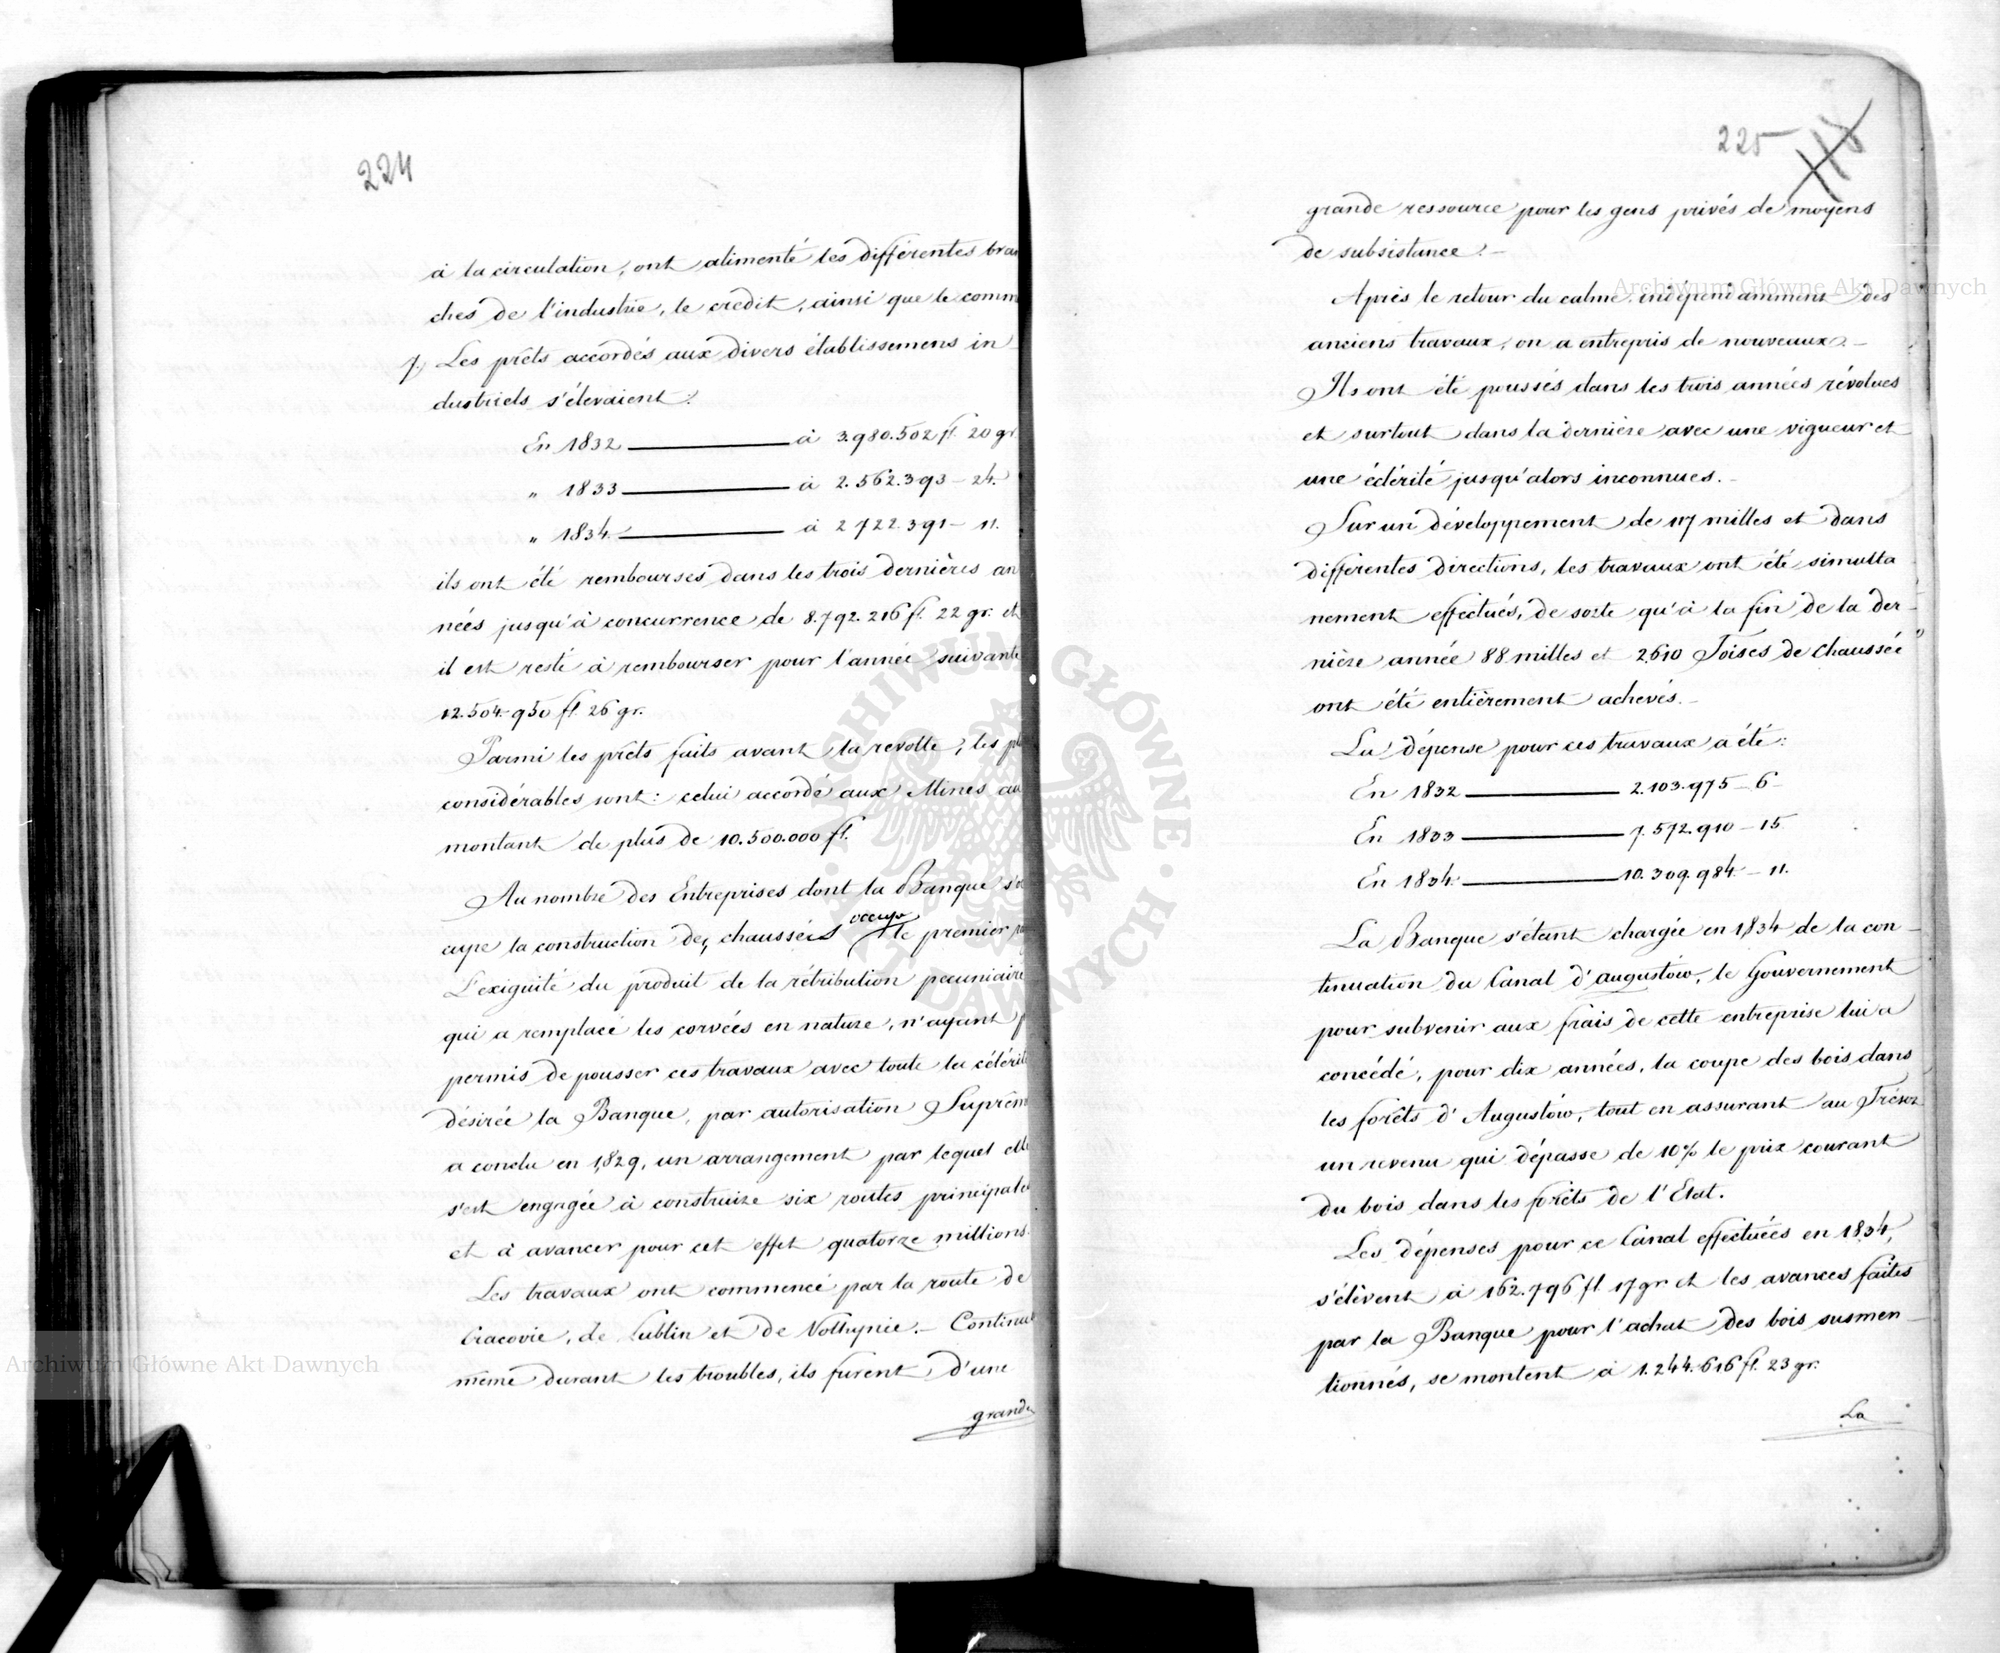 224
à la circulation, ont alimenté les différentes bran
ches de l'industrie, le credit, ainsi que le comm
7. Les prêts accordés aux divers établissemens in
dustriels s'élevaient:
En 1832 à 3.980.502 fl. 20 gr
" 1833 à 2.562.393 – 24.
" 1834. à 2722.391 – 11.
ils ont été remboursés dans les trois dernières an
nées jusqu'à concurrence de 8.792.216 fl. 22 gr. et
il est resté à rembourser pour l'année suivante
12.504.950 fl. 26 gr.
Parmi les prêts faits avant la revolte, les pl
considérables sont: celui accordé aux Mines au
montant de plus de 10.500.000 fl.
Au nombre des Entreprises dont la Banque s'oc
cupe la construction des chaussées occupe le premier
L'exiguité du produit de la rétribution pecuniaire
qui a remplacé les corvées en nature, n'ayant p
permis de pousser ces travaux avec toute la célérité
désirée la Banque, par autorisation Suprêm
a conclu en 1829, un arrangement par lequel elle
s'est engagée à construire six routes principales
et à avancer pour cet effet quatorze millions.
Les travaux ont commencé par la route de
Cracovie, de Lublin et de Volhynie. – Continué
même durant les troubles, ils furent d'une
grande
225
grande ressource pour les gens privés de moyens
de subsistance. –
Après le retour du calme, indépendamment des
anciens travaux, on a entrepris de nouveaux. –
Ils ont été poussés dans les trois années révolues
et surtout dans la dernière avec une vigueur et
une célérité jusqu'alors inconnues. –
Sur un développement de 117 milles et dans
differentes directions, les travaux ont été simulta
nement effectués, de sorte qu'à la fin de la der –
nière année 88 milles et 2610 Toises de chaussée
ont été entièrement achevés. –
La dépense pour ces travaux a été:
En 1832 2.103.975 – 6 –
En 1833 7.572.910 – 15
En 1834. 10.309.984. – 11.
La Banque s'étant chargée en 1834 de la con –
tinuation du Canal d'Augustów, le Gouvernement
pour subvenir aux frais de cette entreprise lui a
concédé, pour dix années, la coupe des bois dans
les forêts d'Augustów, tout en assurant au Trésor
un revenu qui dépasse de 10% le prix courant
du bois dans les forêts de l'Etat.
Les dépenses pour ce Canal effectuées en 1834,
s'élèvent à 162.796 fl 17 gr et les avances faites
par la Banque pour l'achat des bois susmen –
tionnés, se montent à 1.244.616 fl. 23 gr.
La
Archiwum Główne Akt Dawnych
Archiwum Główne Akt Dawnych
ARCHIWUM GŁÓWNE AKT DAWNYCH